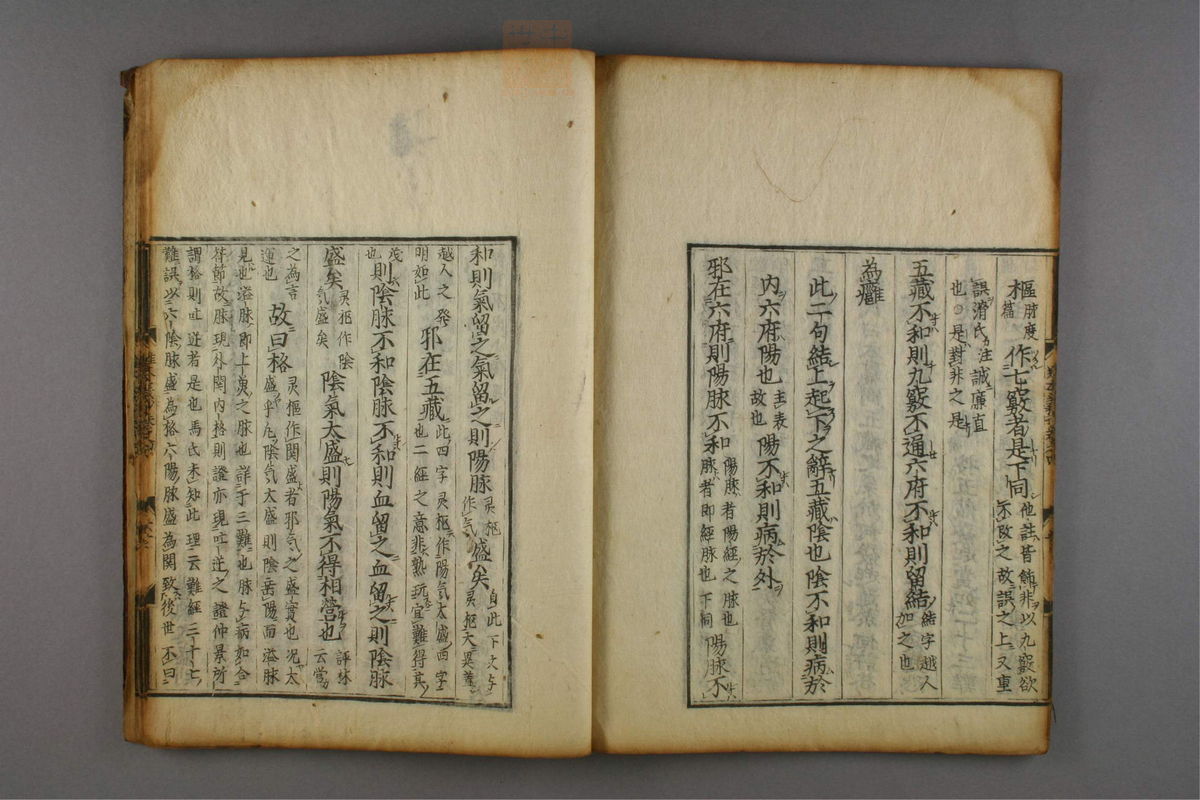 樞脉度篇作七竅者是下同他註皆飾非以九竅欲不改之故誤之上又重
誤滑氏注誠廉直也○是對非之是
五藏不和則九竅不通六府不和則留結結字越人加之也
為癰
此二句結上起下之辭五藏陰也陰不和則病於
內六府陽也主表故也陽不和則病於外
邪在六府則陽脉不和陽脉者陽經之脉也脉者即經脉也下同陽脉不
和則氣留之氣留之則陽脉灵枢作气盛矣自此下文与灵枢大異蓋
越人之發明如此邪在五藏此四字灵枢作陽気太盛四字也二經之意非熟玩宜難得其
茂也則陰脉不和陰脉不和則血留之血留之則陰脉
盛矣灵枢作陰気盛矣陰氣太盛則陽氣不得相營也評林云營
之為言運也故曰格灵樞作関盛者邪气之盛實也况太盛乎凡陰気太盛則陰岳陽而溢脉
見也溢脉即上魚之脉也詳于三難也脉与病如合
符節故脉現外関内格則證亦現吐逆之證仲景所
謂格則吐逆者是也馬氏未知此理云難經三十七
難誤以六陰脉盛為格六陽脉盛為関致後世丕曰